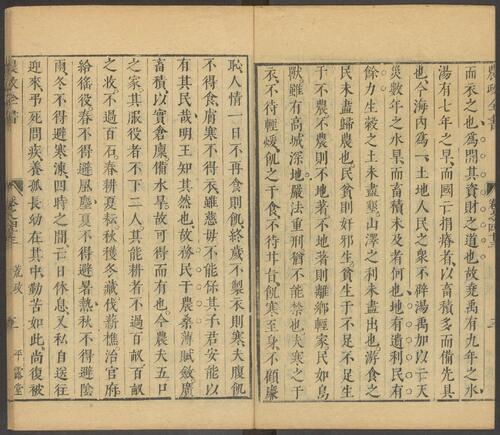 而衣之也為開其資財之道也故堯禹有九年之水
湯有七年之旱而國亡捐瘠者以畜積多而備先具
也今海內為一土地人民之衆不辟湯禹加以亡天
災數年之水旱而畜積未及者何也地有遺利民有
餘力生穀之土未盡墾山澤之利未盡出也游食之
民未盡歸農也民貧則奸邪生貧生于不足不足生
于不農不農則不地著不地著則離鄉輕家民如鳥
獸雖有高城深池嚴法重刑猶不能禁也夫寒之于
衣不待輕煖飢之于食不待甘旨飢寒至身不顧廉
恥人情一日不再食則飢終歲不製衣則寒夫腹飢
不得食膚寒不得衣雖慈母不能保其子君安能以
有其民哉明王知其然也故務民于農桑薄賦斂廣
畜積以實倉廩備水旱故可得而有也今農夫五口
之家其服役者不下二人其能耕者不過百畝百畝
之收不過百石春耕夏耘秋穫冬藏伐薪樵治官府
給徭役春不得避風塵夏不得避暑熱秋不得避陰
雨冬不得避寒凍四時之間亡日休息又私自送往
迎來弔死問疾養孤長幼在其中勤苦如此尚復被
農政全書 卷之四十三 荒政 平露堂